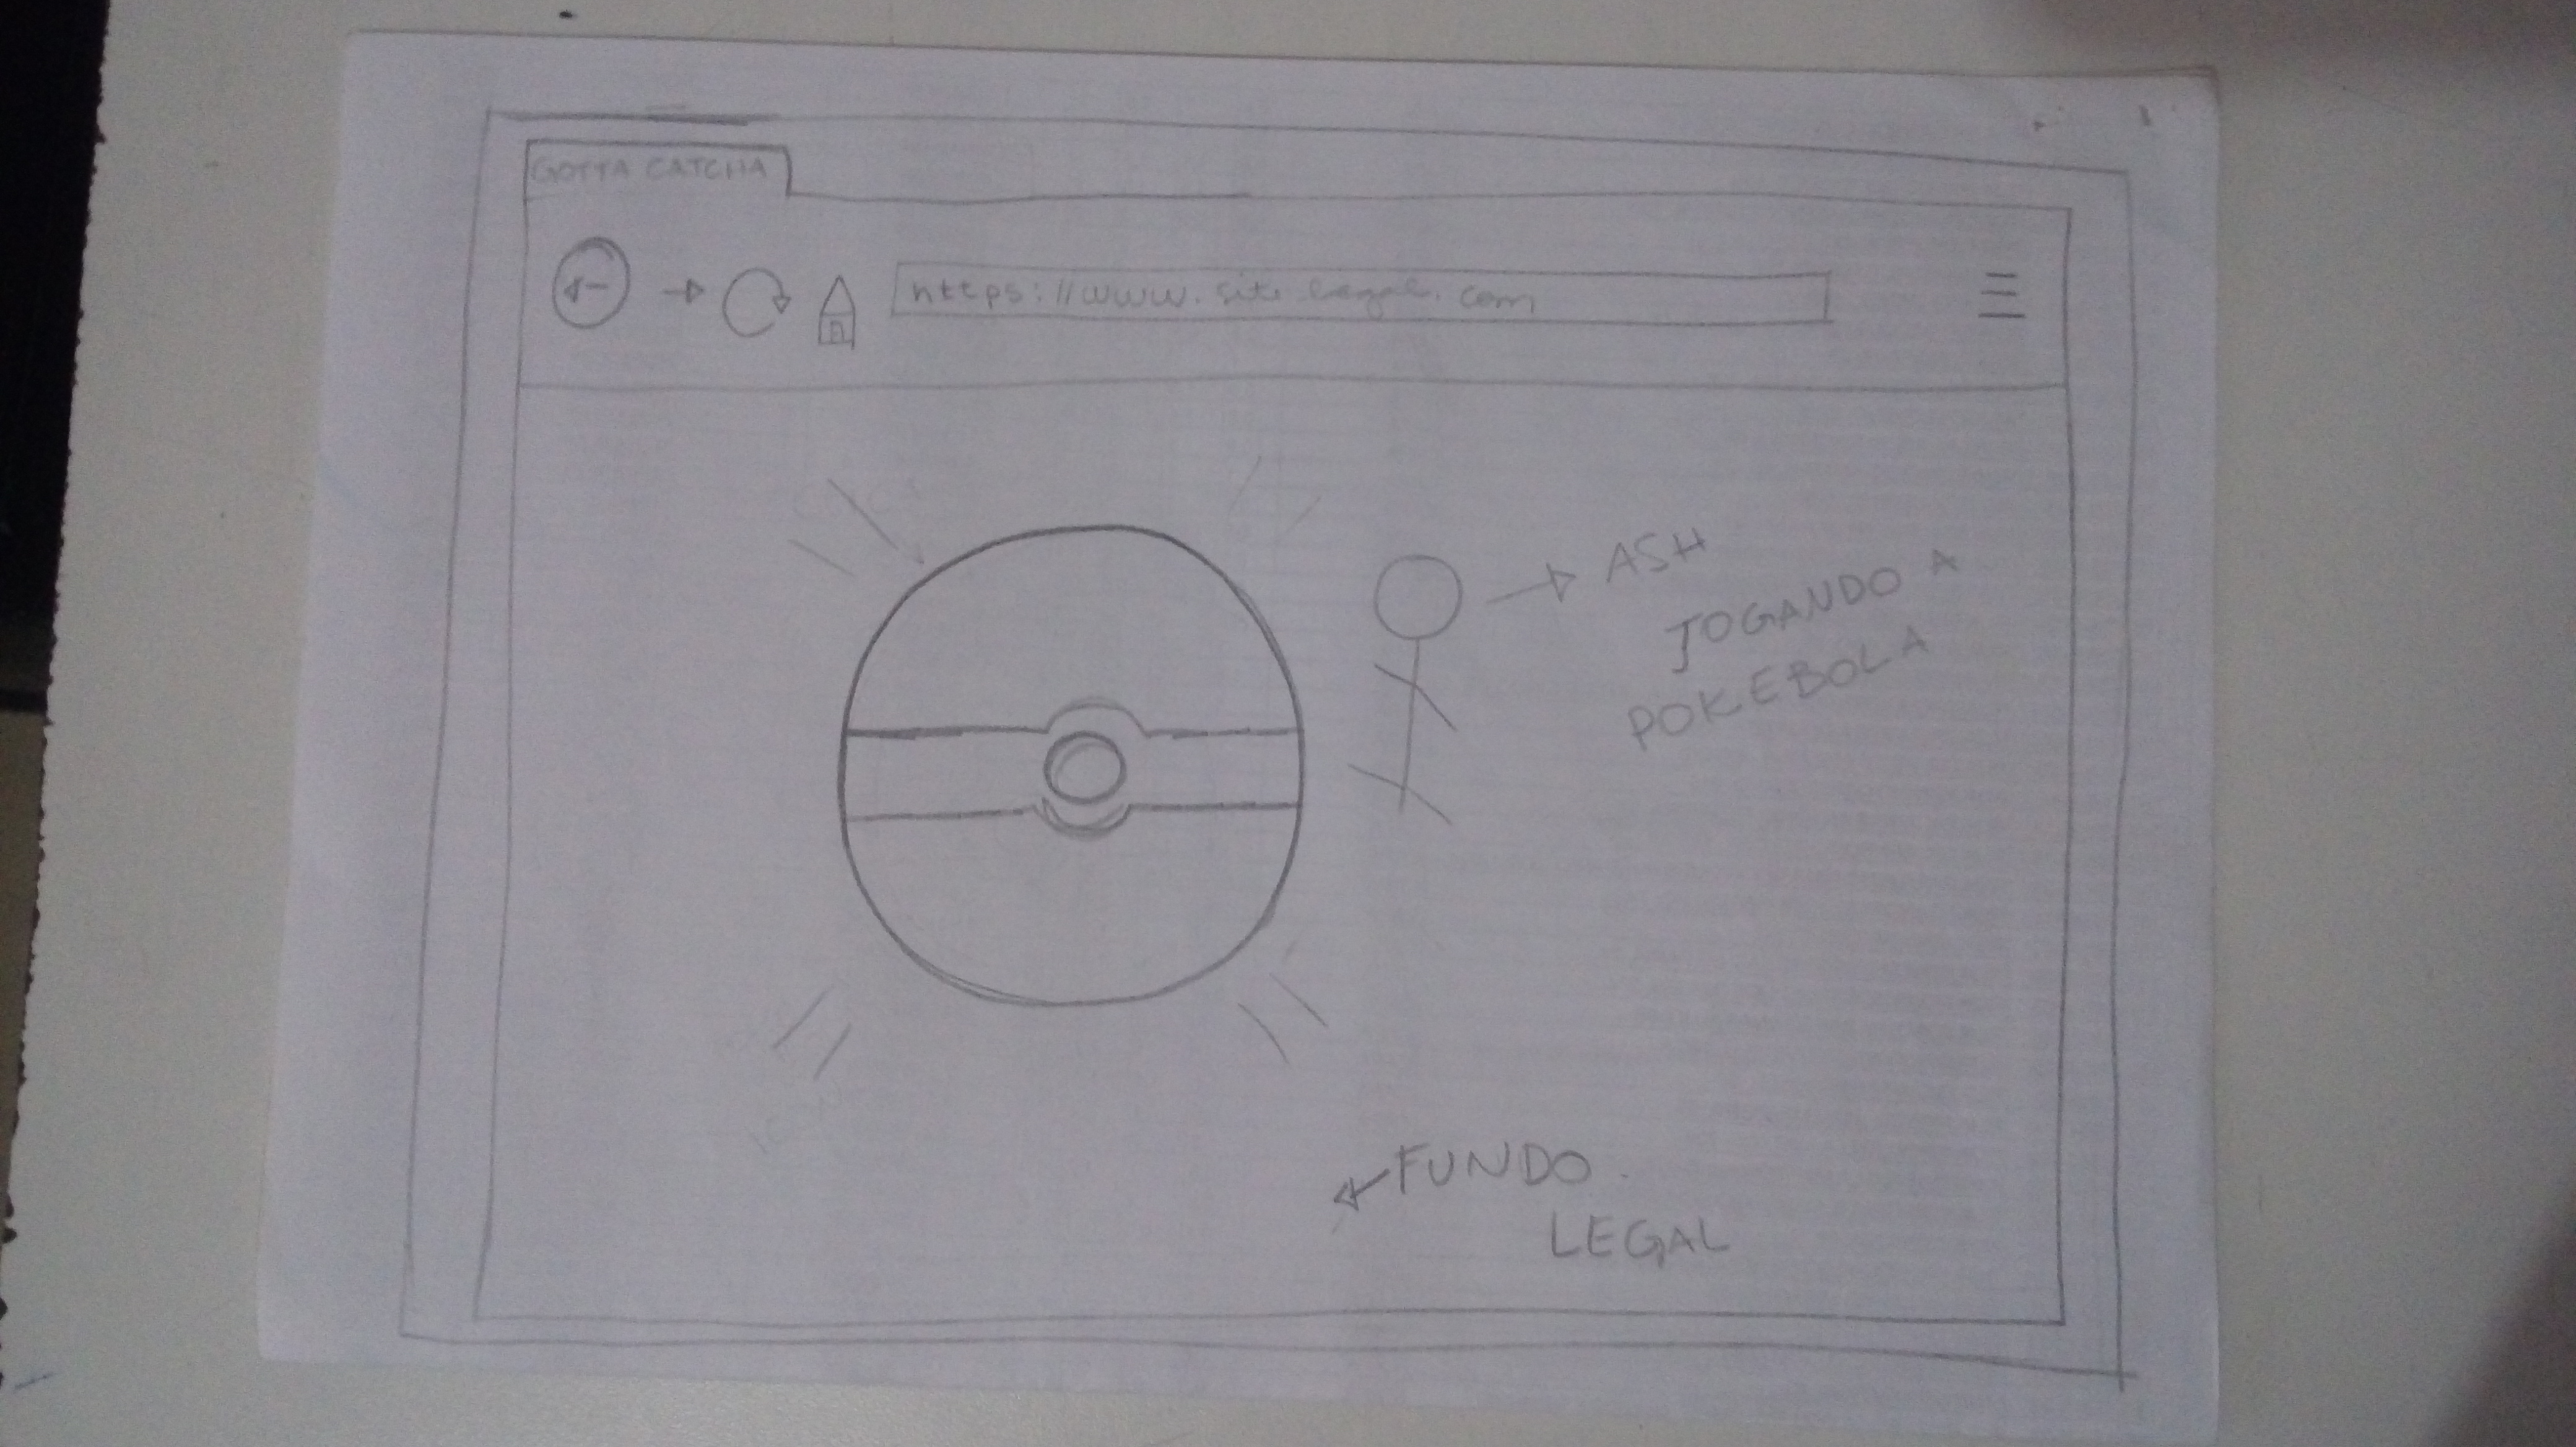 GOTTA CATCHA
https://www.site.legal.com
ASH
JOGANDO A
POKEBOLA
FUNDO
LEGAL